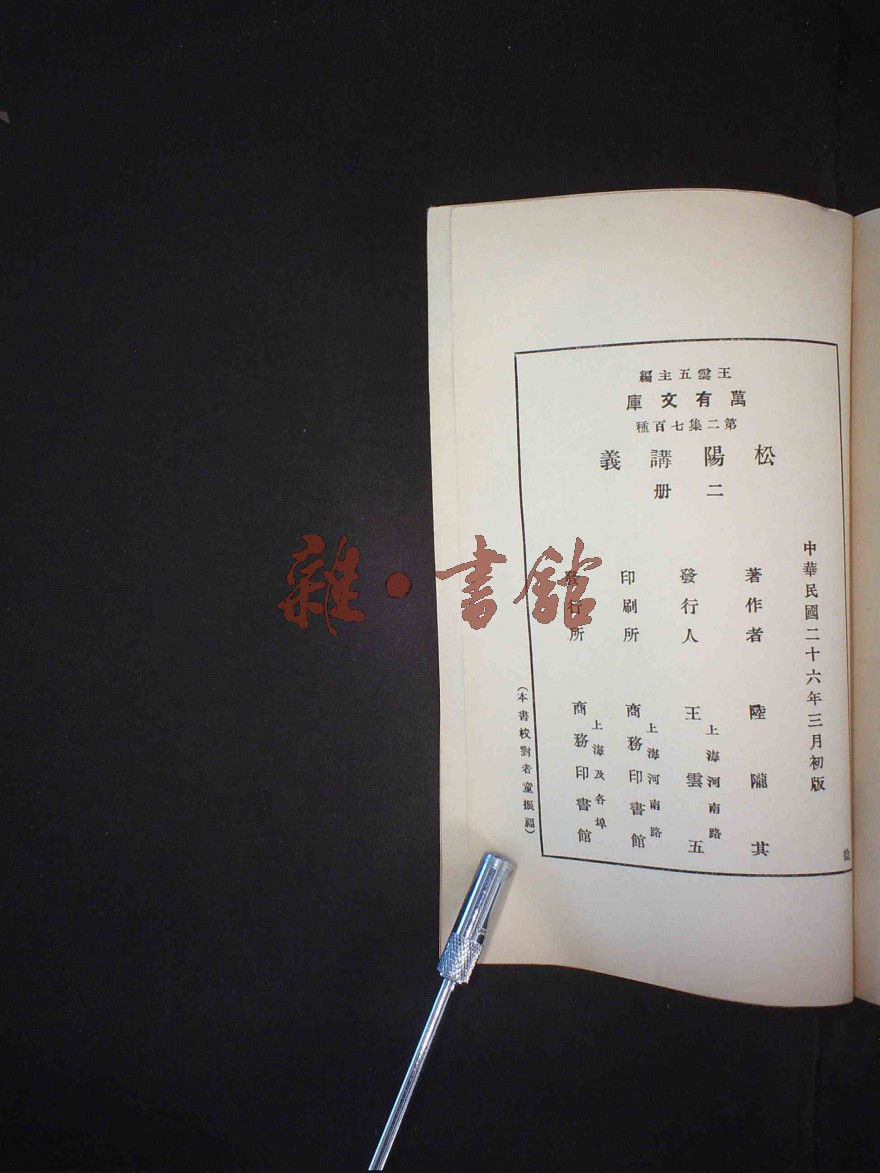 王雲五主編
萬有文庫
第二集七百種
松陽講義
二册
中華民國二十六年三月初版
著作者 陸隴其
發行人 王雲五
上海河南路
印刷所 商務印書館
上海河南路
發行所 商務印書館
上海及各埠
(本書校對者童振福)
雜·書館